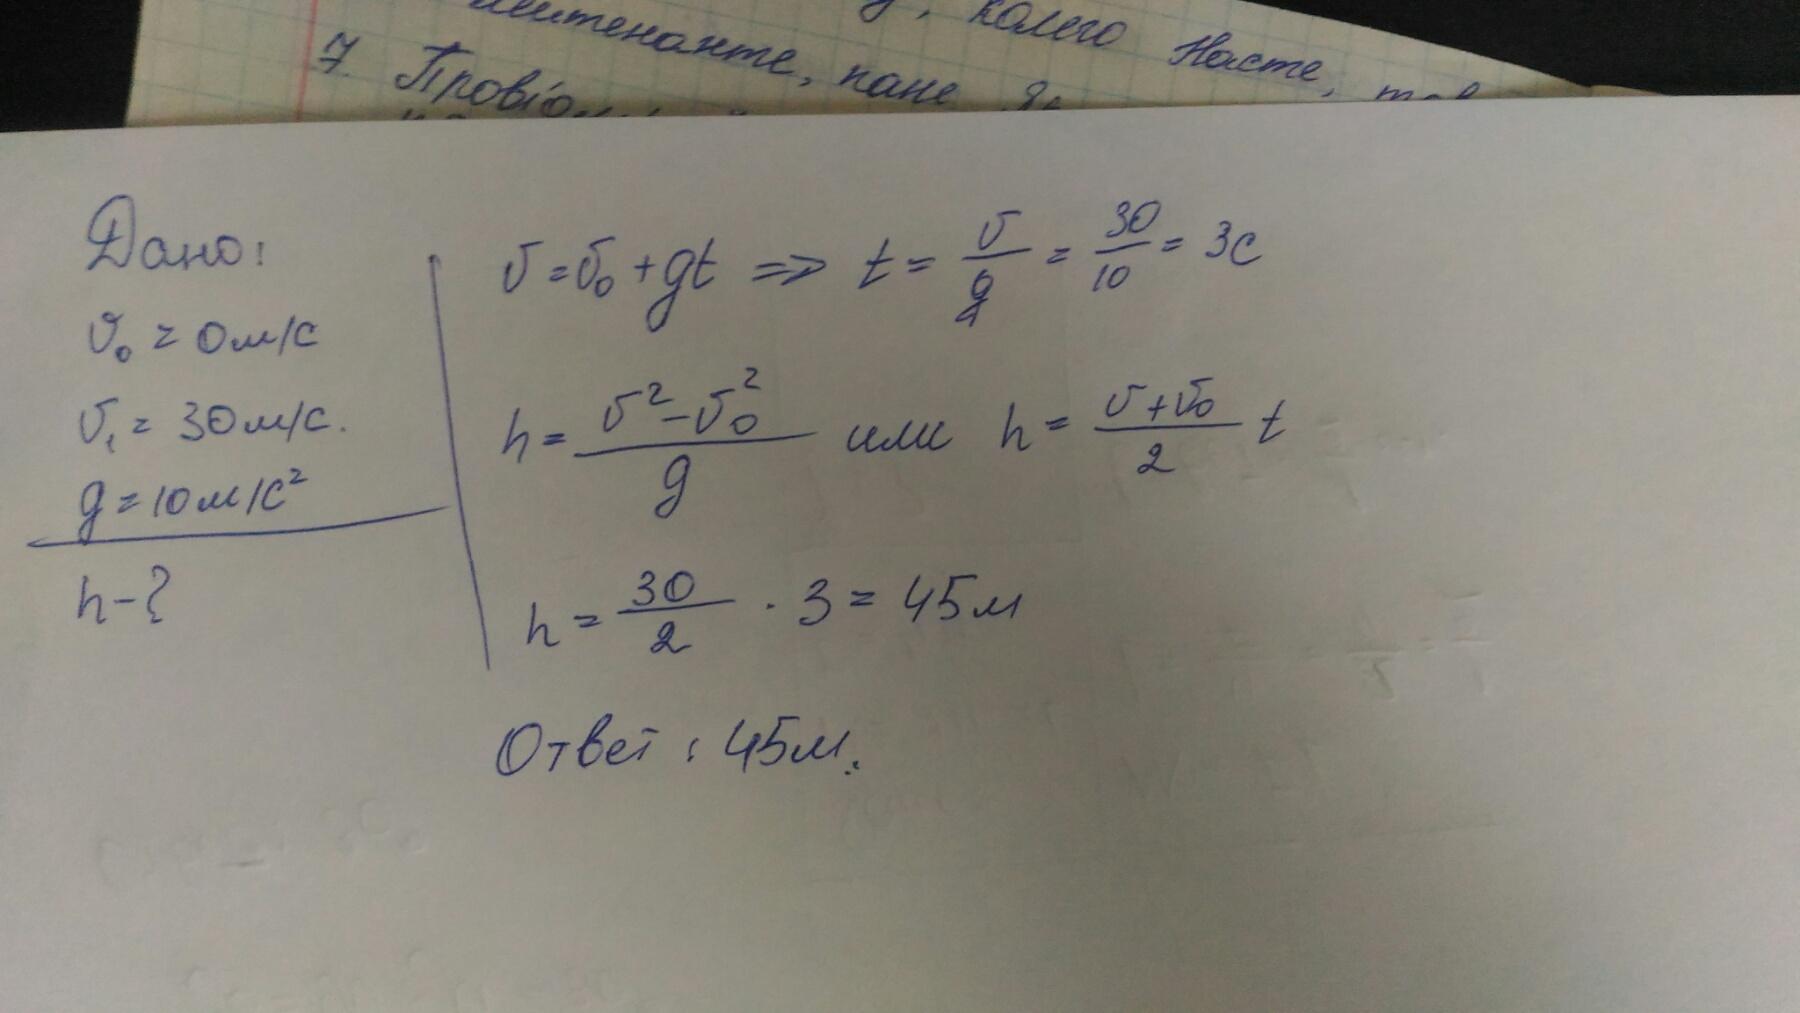 колего Насте,
лейтенанте, пане
7.
Дано:
v₀ = 0м/с
v₁ = 30м/с.
g = 10м/с²
h-?
v = v₀ + gt => t = v/g = 30/10 = 3с
h = (v² - v₀²)/g или h = (v + v₀)/2 t
h = 30/2 · 3 = 45м
Ответ: 45м.